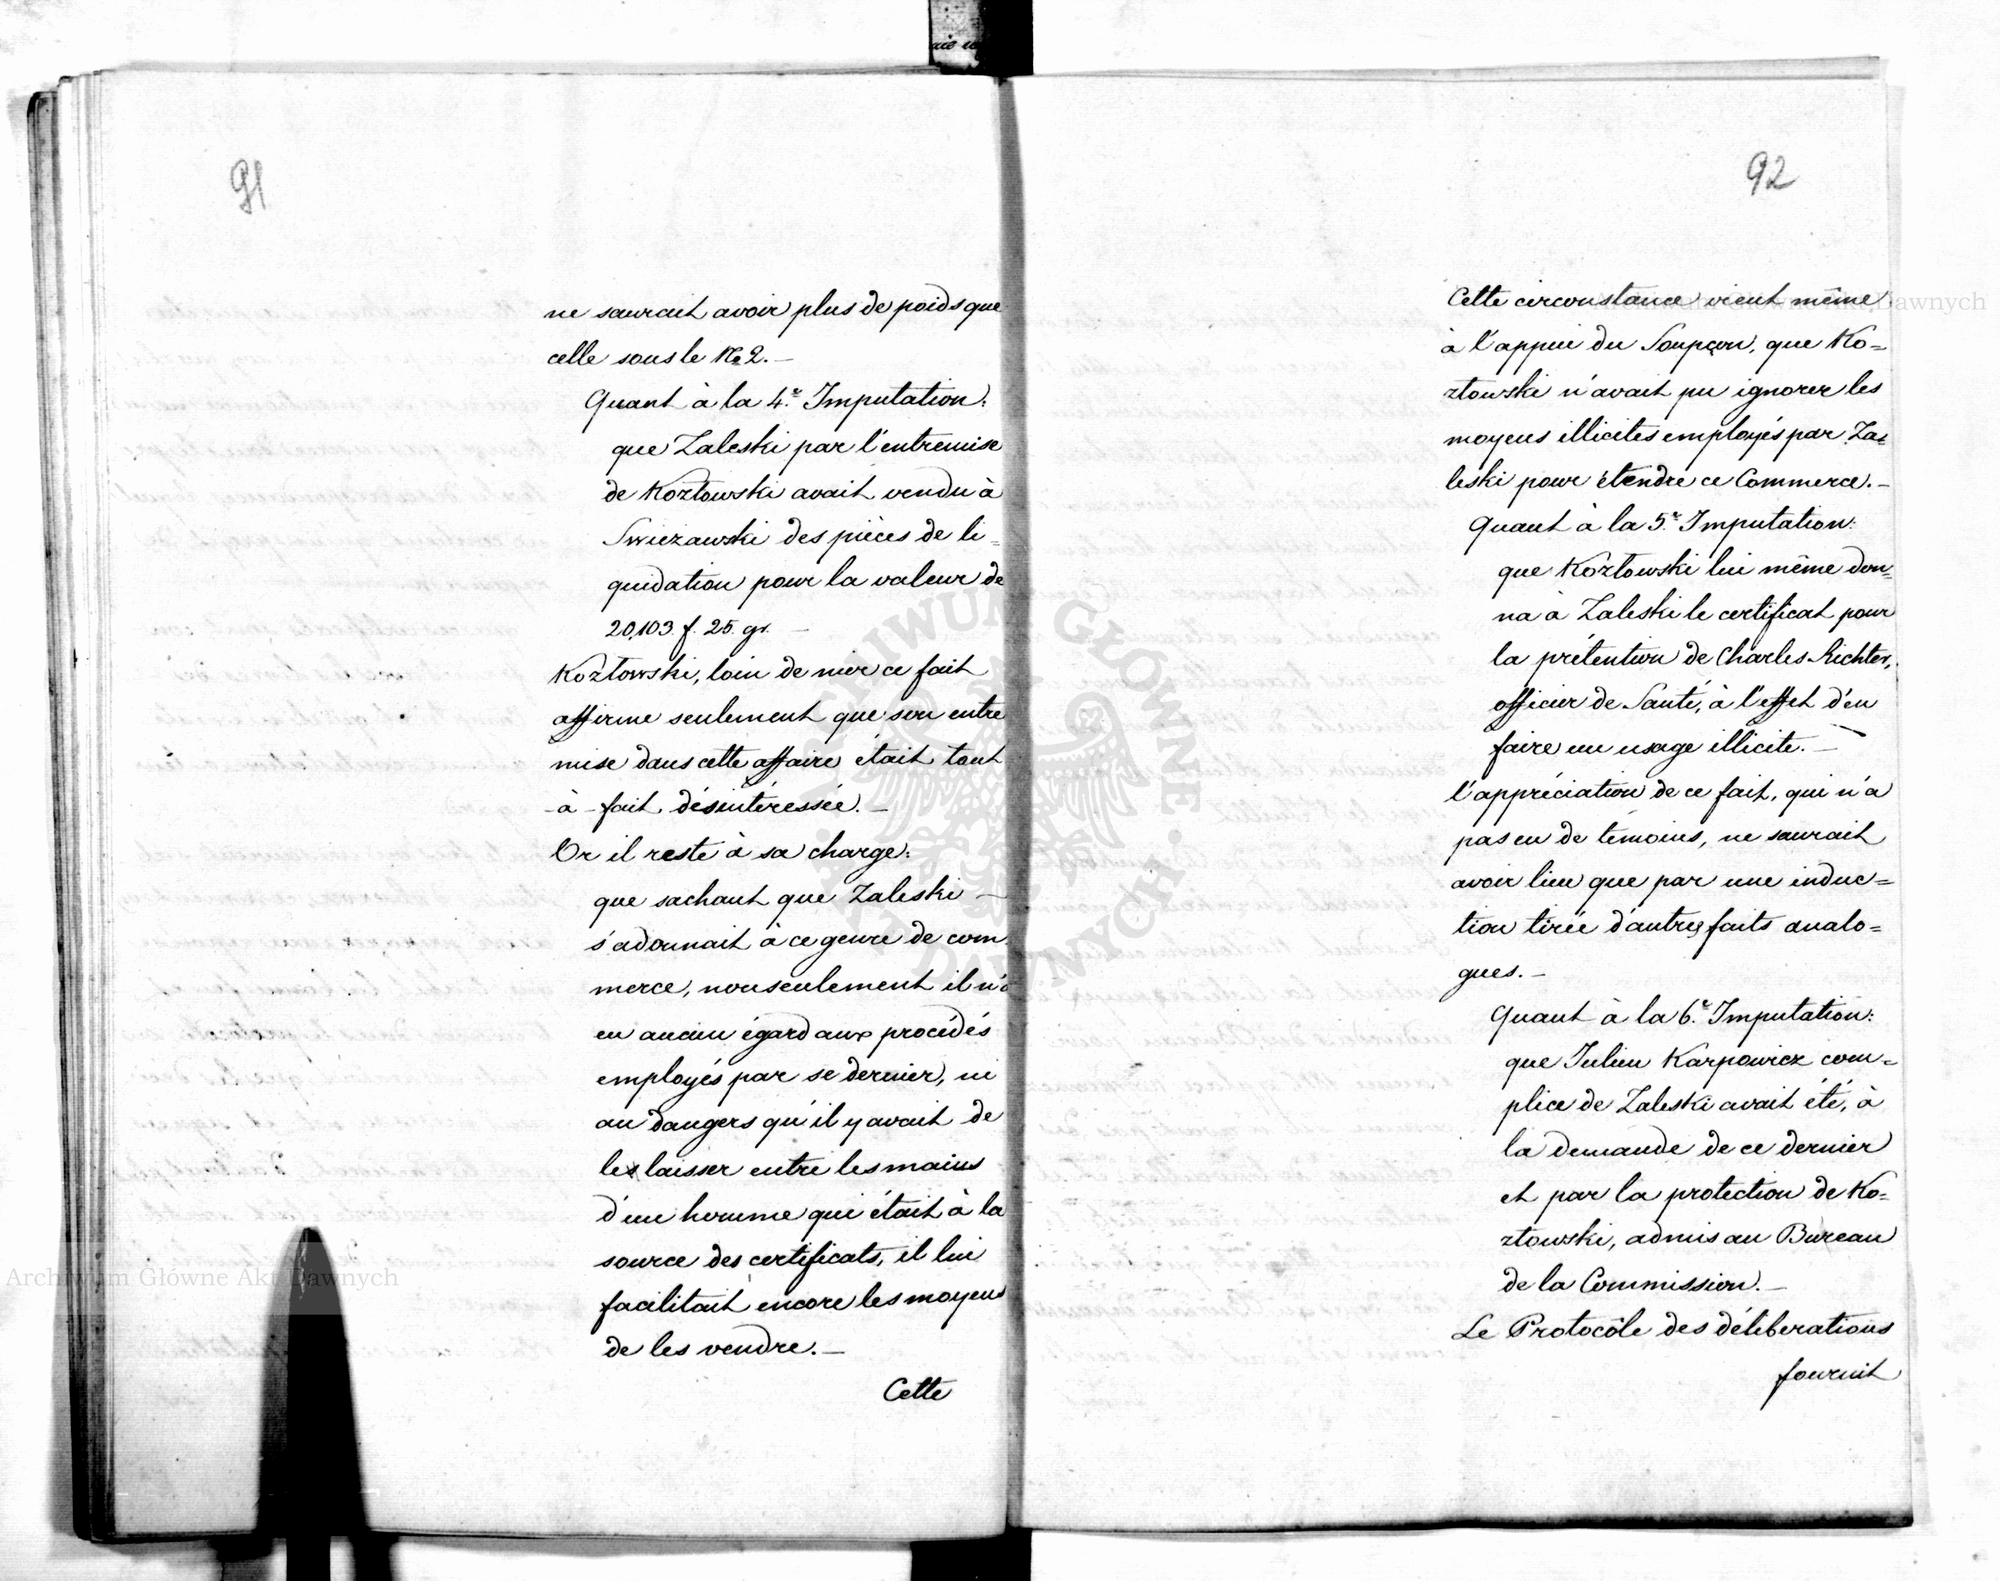 91
ne saurait avoir plus de poids que
celle sous le No 2. —
Quant à la 4.e Imputation:
que Zaleski par l'entremise
de Kozłowski avait vendu à
Swiezawski des pièces de li=
quidation pour la valeur de
20,103. f. 25. gr. —
Kozłowski, loin de nier ce fait
affirme seulement que son entre
mise dans cette affaire était tout
-à-fait désintéressée. —
Or il reste à sa charge:
que sachant que Zaleski —
s'adonnait à ce genre de com
merce, nonseulement il n'a
eu aucun égard aux procédés
employés par se dernier, ni
au dangers qu'il y avait de
les laisser entre les mains
d'un homme qui était à la
source des certificats, il lui
facilitait encore les moyens
de les vendre. —
Cette
92
Cette circonstance vient même
à l'appui du Soupçon, que Ko=
złowski n'avait pu ignorer les
moyens illicites employés par Za=
leski pour étendre ce Commerce. —
Quant à la 5.e Imputation:
que Kozłowski lui même don=
na à Zaleski le certificat pour
la prétention de Charles Richter,
officier de Santé, à l'effet d'en
faire un usage illicite. —
l'appréciation de ce fait, qui n'a
pas eu de témoins, ne saurait
avoir lieu que par une induc=
tion tirée d'autres faits analo=
gues. —
Quant à la 6.e Imputation:
que Julien Karpowicz com=
plice de Zaleski avait été, à
la demande de ce dernier
et par la protection de Ko=
złowski, admis au Bureau
de la Commission. —
Le Protocôle des déliberations
fournit
Archiwum Główne Akt Dawnych
Archiwum Główne Akt Dawnych
ARCHIWUM GŁÓWNE AKT DAWNYCH